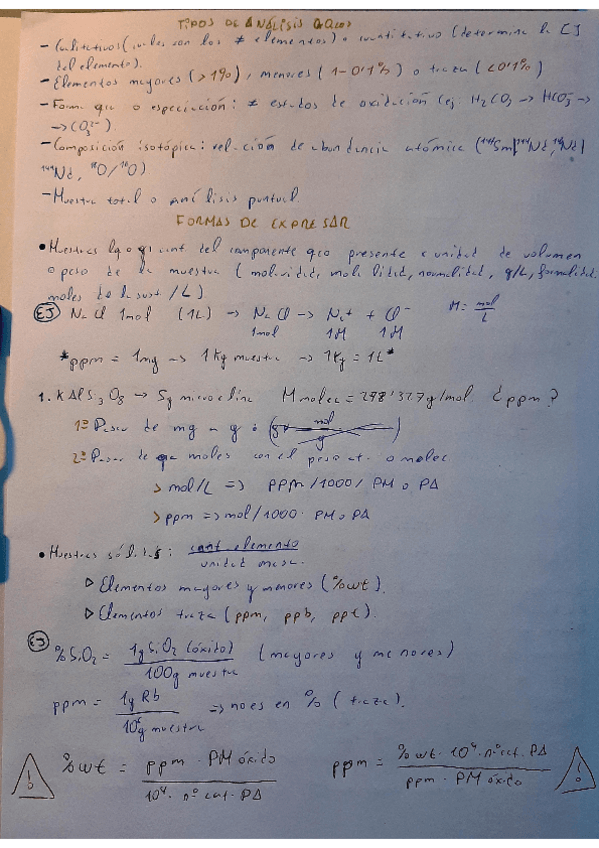 TIPOS DE ANÁLISIS GQCOS
- Cualitativos (cuales son los ≠ elementos) o cuantitativo (determina la [ ]
del elemento).
- Elementos mayores (>1%), menores (1-0'1%) o traza (<0'1%)
- Forma qca o especiación: ≠ estados de oxidación (ej: H₂CO₃ → HCO₃⁻ →
→ CO₃²⁻)
- Composición isotópica: relación de abundancia atómica (¹⁴⁷Sm/¹⁴⁴Nd, ¹⁴³Nd/
¹⁴⁴Nd, ¹⁸O/¹⁶O)
- Muestra total o análisis puntual.
FORMAS DE EXPRESAR
• Muestras lq o g: cant del componente qco presente x unidad de volumen
o peso de la muestra (molaridad, molalidad, normalidad, g/L, formalidad:
moles de la sust/L).
EJ NaCl 1mol (1L) → NaCl → Na⁺ + Cl⁻ M = mol/L
1mol 1M 1M
*ppm = 1mg → 1Kg muestra → 1Kg = 1L*
1. KAlSi₃O₈ → 5g microclina Mmolec = 278'327g/mol. ¿ppm?
1º Pasar de mg a g
2º Pasar de moles con el peso at. o molec
> mol/L => ppm/1000/PM o PA
> ppm => mol/1000 · PM o PA
• Muestras sólidas: cant elemento / unidad masa.
▷ Elementos mayores y menores (%wt).
▷ Elementos traza (ppm, ppb, ppt).
EJ %SiO₂ = 1g SiO₂ (óxido) / 100g muestra (mayores y menores)
ppm = 1g Rb / 10⁶g muestra => no es en % (traza).
! %wt = ppm · PM óxido / 10⁴ · nº cat · PA
ppm = %wt · 10⁴ · nº cat · PA / ppm · PM óxido !